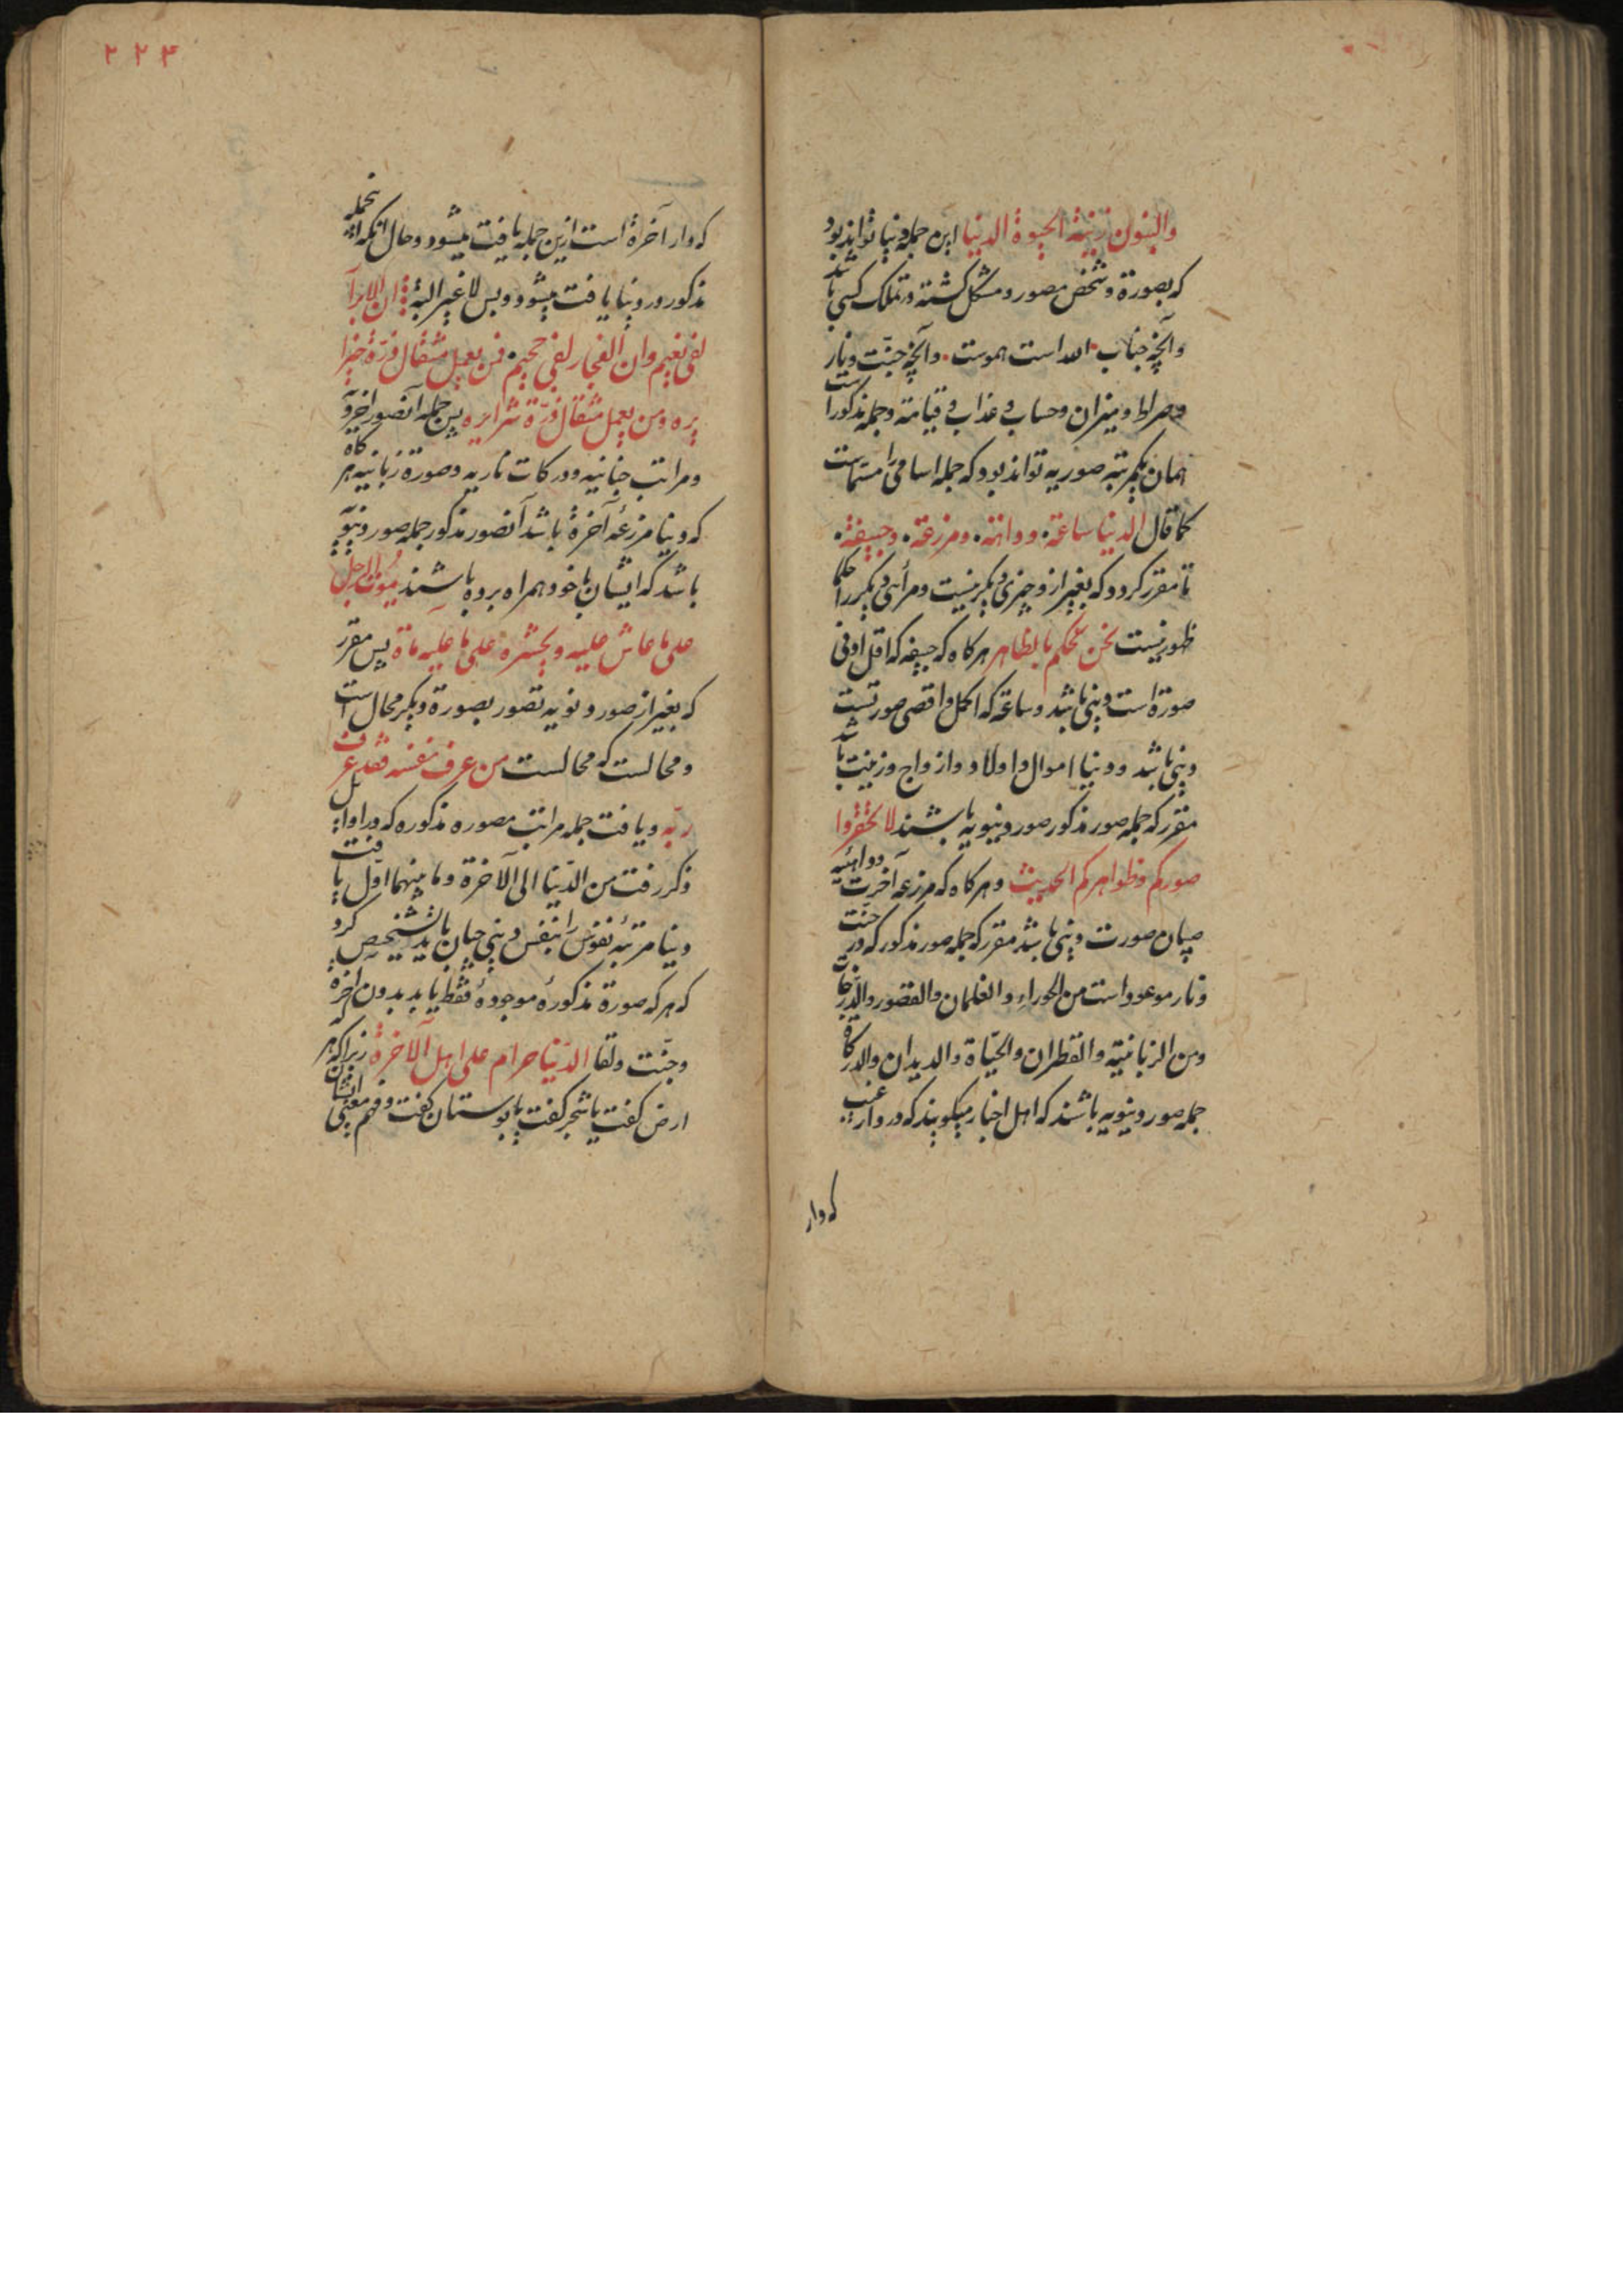 والبنون زینة الحیوة الدنیا این جمله دنیا تواند بود
که بصورة و شخص مصور و مشکل کشته در تملک کسی باشد
و آنچه جناب الله است هموست و آنچه جنّت و نار
و صراط و میزان و حساب و عذاب و قیامة و جمله مذکور است
همان یکمرتبه صوریه تواند بود که جمله اسامی را مسمّاست
کما قال الدنیا ساعة و مزرعة و جیفة
تا مقرر کردد که بغیر ازو چیزی دیکر نیست و مرأی دیکر را حکم
ظهور نیست نحن نحکم بالظاهر هرکاه که جیفه که اقل ادنی
صورة است دنیی باشد و ساعة که اکمل و اقصی صورتست
دنیی باشد و دنیا اموال و اولاد و ازواج و زینت باشد
مقرر که جمله صور مذکور صور دنیویه باشند لا تحقروا
صورکم و ظواهرکم الحدیث و هرکاه که مزرعه آخرت
صورت دنیی باشد مقرر که جمله صور مذکور که در جنّت
و نار موعود است من الحوراء و الغلمان و القصور و الدرجات
و من الزبانیّة و القطران و الحیّاة و الدیدان و الدرکاة
جمله صور دنیویه باشند که اهل اخبار میکویند که در دار عقبی
که دار
۲۲۴
که دار آخرة است ازین جمله یافت میشود و حال آنکه اینجمله
مذکور در دنیا یافت میشود و بس لا غیر البتّة ان الابرار
لفی نعیم و ان الفجار لفی جحیم فمن یعمل مثقال ذرّة خیرا
یره و من یعمل مثقال ذرّة شرا یره پس جمله آنصور اخرویّه
و مراتب جنانیه و درکات ناریه و صورة زبانیه هرکاه
که دنیا مزرعهٔ آخرة باشد آنصور مذکور جمله صور دنیویّه
باشد که ایشان با خود همراه برده باشند یموت الرجل
علی ما عاش علیه و یحشر علی ما علیه ماة پس مقرر
که بغیر از صور دنیویه تصور بصورة دیکر محال است
و محالست که محالست من عرف نفسه فقد عرف
ربّه و یافت جمله مراتب مصوره مذکوره که در اوایل
ذکر رفت من الدّنیا الی الآخرة و ما بینهما اوّل یافت
دنیا مرتبهٔ نفوس را بنفس دنیی چنان باید تشخیص کرد
که هر که صورة مذکورهٔ موجودهٔ فقط یابد بدون آخرة
و جنّت و لقا الدّنیا حرام علی اهل الآخرة زیرا که هر که
ارض کفت یا شجر کفت یا بوستان کفت و فهم معنیی